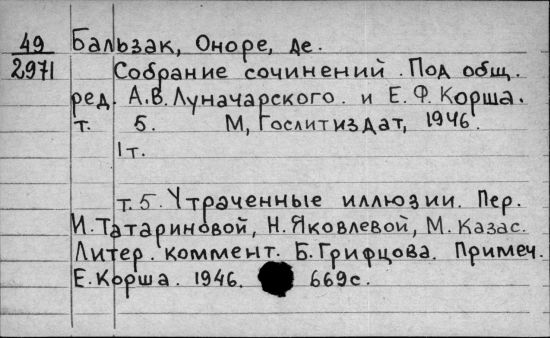 49 Бальзак, Оноре, де.
2971 Собрание сочинений. Под общ.
ред. А.В. Луначарского. и Е. Ф. Корша.
т. 5. М, Гослитиздат, 1946.
1т.
т. 5. Утраченные иллюзии. Пер.
И. Татариновой, Н. Яковлевой, М. Казас.
Литер. коммент. Б. Грифцова. Примеч.
Е. Корша. 1946. 669с.